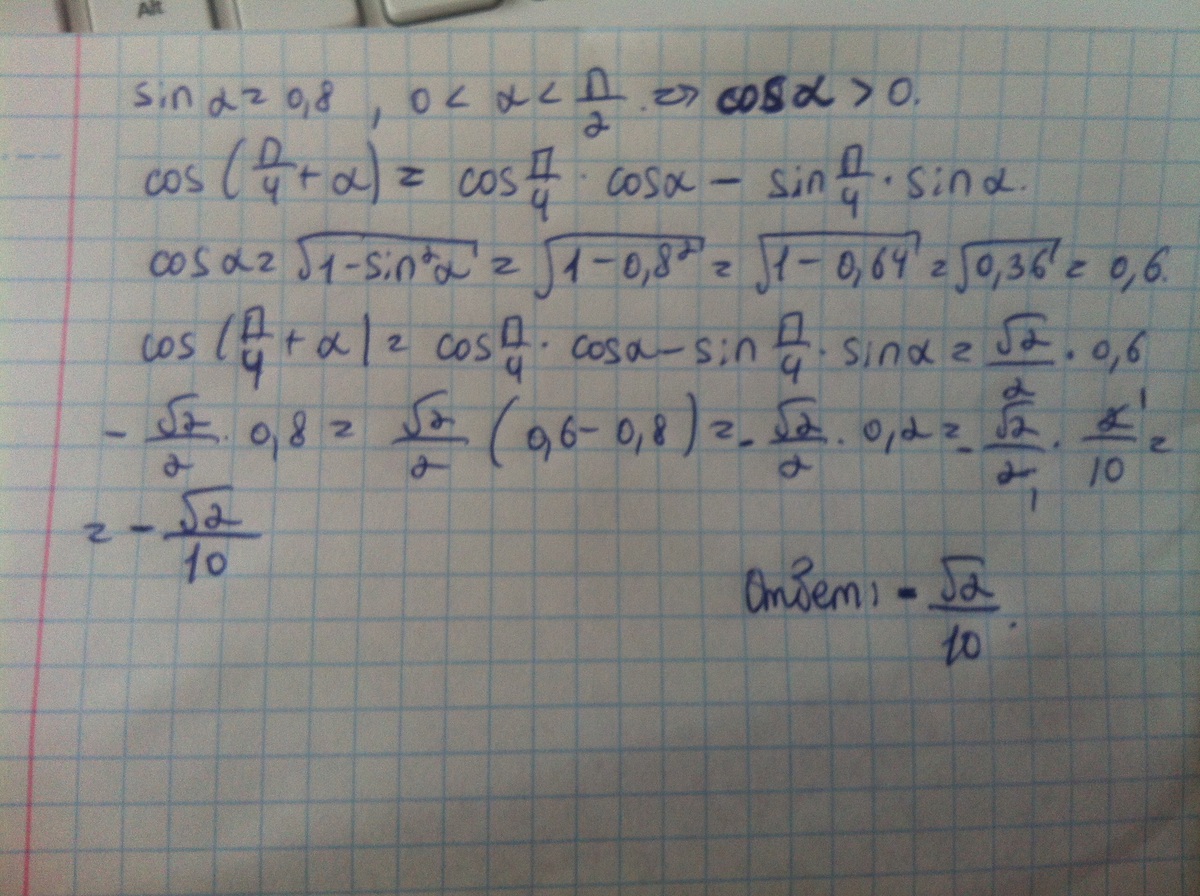 Alt
sin α = 0,8 , 0 < α < П/2 => cos α > 0.
cos (П/4 + α) = cos П/4 · cos α − sin П/4 · sin α.
cos α = √(1 − sin²α) = √(1 − 0,8²) = √(1 − 0,64) = √0,36 = 0,6.
cos (П/4 + α) = cos П/4 · cos α − sin П/4 · sin α = √2/2 · 0,6
− √2/2 · 0,8 = √2/2 (0,6 − 0,8) = − √2/2 · 0,2 = − √2/2 1 · 2 1/10 =
= − √2/10
Ответ: − √2/10.